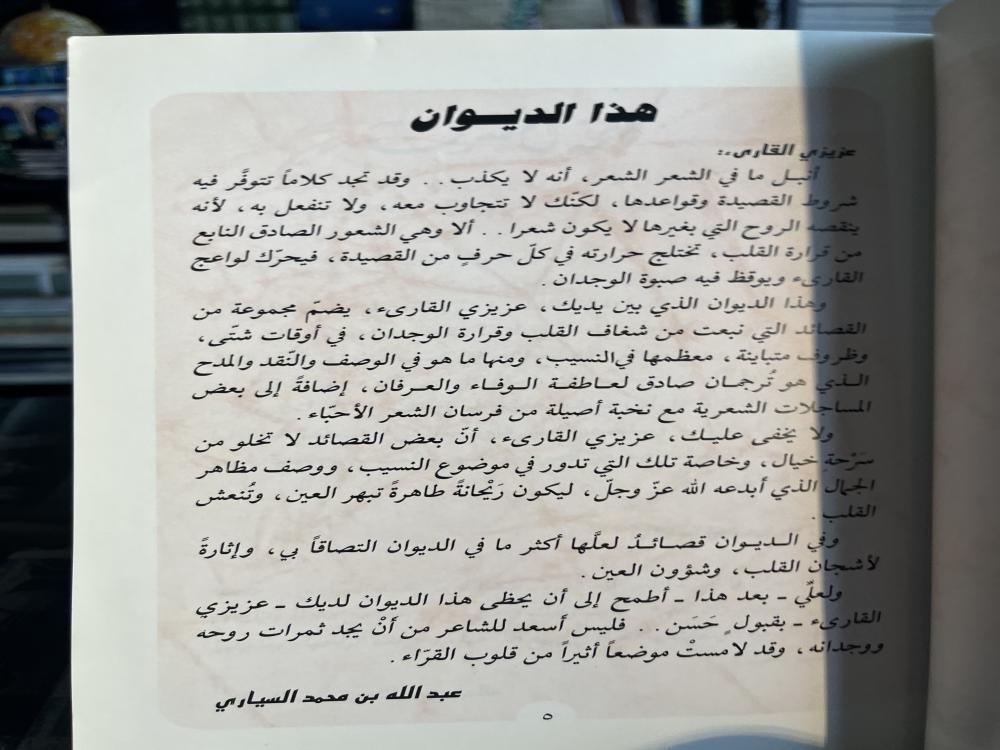 هذا الديـوان
عزيزي القارىء:
أنبـل ما في الشعر الشعر، أنه لا يكذب.. وقد تجد كلاماً تتوفَّر فيه
شروط القصيدة وقواعدها، لكنّك لا تتجاوب معه، ولا تنفعل به، لأنه
ينقصه الروح التي بغيرها لا يكون شعرا.. ألا وهي الشعور الصادق النابع
من قرارة القلب، تختلج حرارته في كلّ حرفٍ من القصيدة، فيحرّك لواعج
القارىء ويوقظ فيه صبوة الوجدان.
وهذا الديوان الذي بين يديك، عزيزي القارىء، يضمّ مجموعة من
القصائد التي نبعت من شغاف القلب وقرارة الوجدان، في أوقات شتّى،
وظروف متباينة، معظمها في النسيب، ومنها ما هو في الوصف والنّقد والمدح
الـذي هو تُرجمـان صادق لعـاطفـة الـوفـاء والعـرفان، إضافةً إلى بعض
المساجلات الشعرية مع نخبة أصيلة من فرسان الشعر الأحبّاء.
ولا يخفى عليـك، عزيزي القارىء، أنّ بعض القصائد لا تخلو من
سَرْحةِ خيال، وخاصة تلك التي تدور في موضوع النسيب، ووصف مظاهر
الجمال الذي أبدعه الله عزّ وجلّ، ليكون رَيْحانةً طاهرةً تبهر العين، وتُنعش
القلب.
وفي الـديـوان قصـائـدُ لعلَّها أكثر ما في الديوان التصاقاً بي، وإثارةً
لأشجان القلب، وشؤون العين.
ولعلّي ـ بعد هذا ـ أطمح إلى أن يحظى هذا الديوان لديك ـ عزيزي
القارىء ـ بقبولٍ حَسَن.. فليس أسعد للشاعر من أنْ يجد ثمرات روحه
ووجدانه، وقد لامستْ موضعاً أثيراً من قلوب القرّاء.
عبد الله بن محمد السياري
٥